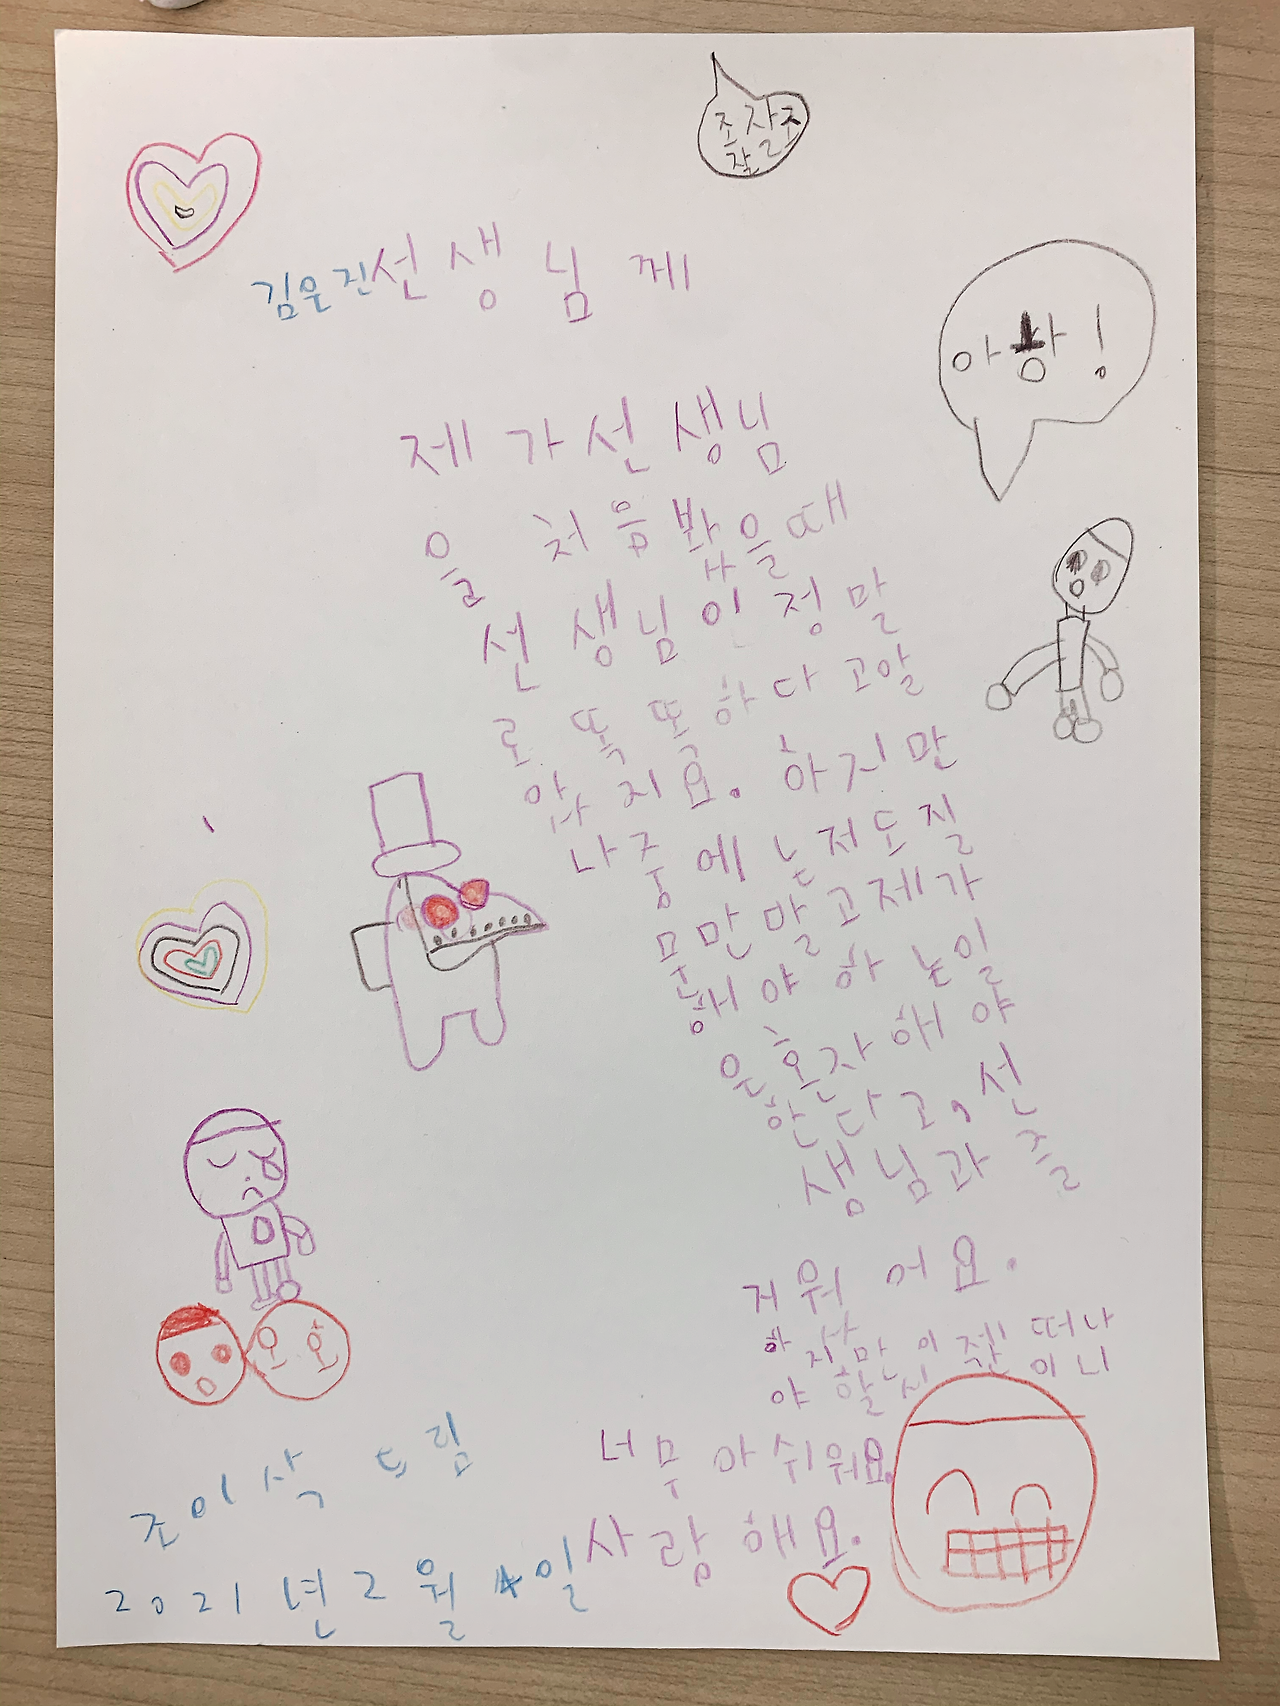 조잘조
잘
김은진선생님께
아황!
제가선생님
을 처음봤을때
선생님인정말
로 똑똑하다고알
았지요. 하지만
나중에는저도질
문만말고제가
해야하는일
은혼자해야
한다고, 선
생님과 즐
거워어요.
하지만 이젠 떠나
야할시간이니
너무아쉬워요.
사랑해요.
오호
조이삭 드림
2021년 2월 4일